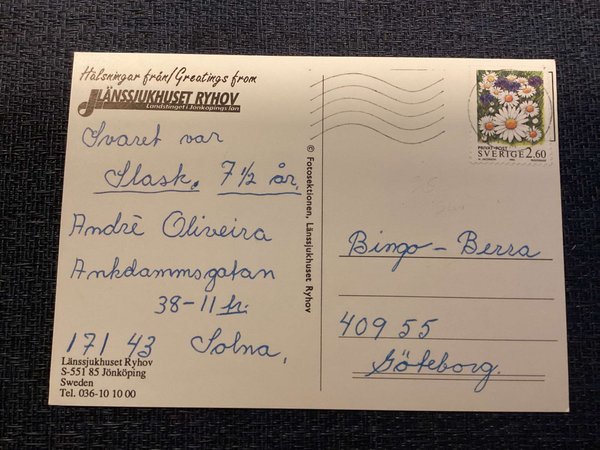 Hälsningar från/Greetings from
LÄNSSJUKHUSET RYHOV
Landstinget i Jönköpings län
Svaret var
Slask. 7 1/2 år.
Andrè Oliveira
Ankdammsgatan
38-11 tr.
171 43 Solna.
Länssjukhuset Ryhov
S-551 85 Jönköping
Sweden
Tel. 036-10 10 00
© Fotosektionen, Länssjukhuset Ryhov
PRIVAT POST
SVERIGE 2.60
Bingo-Berra
409 55
Göteborg.